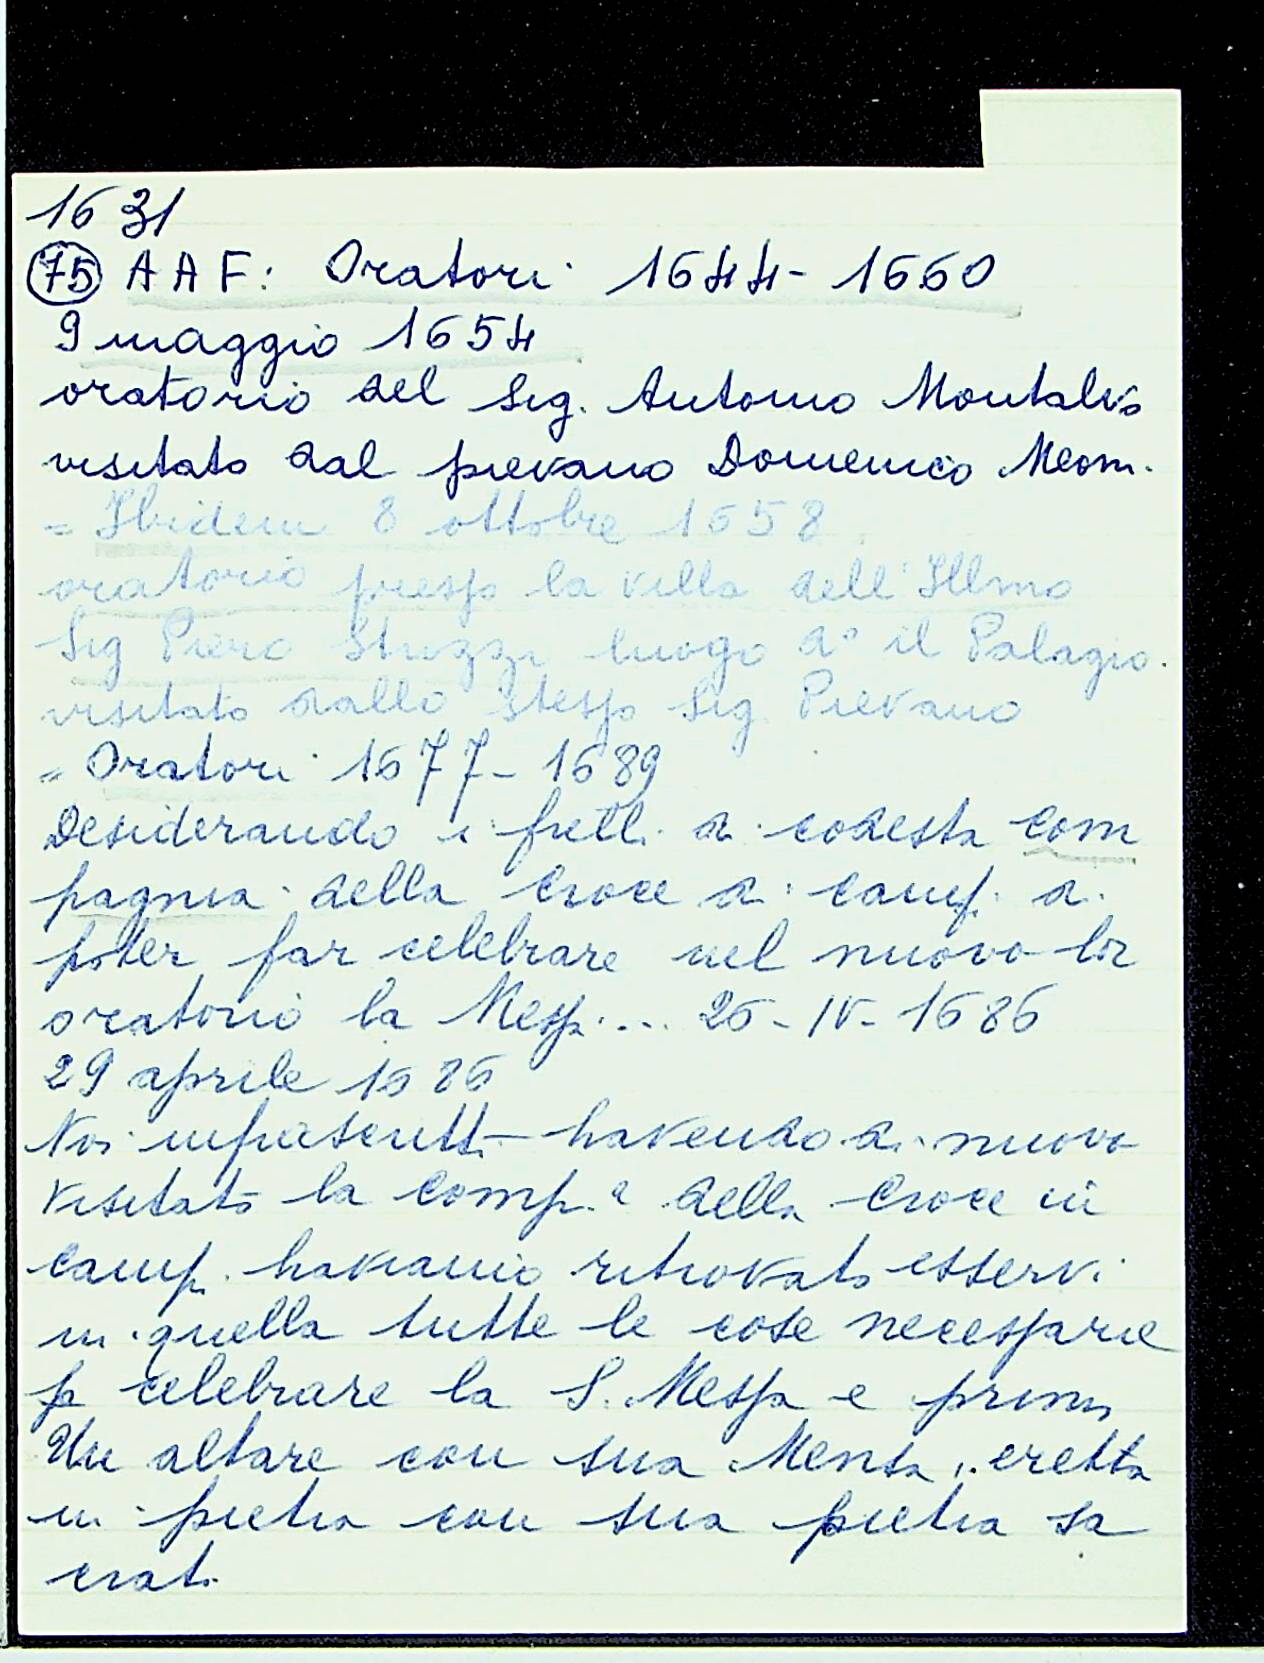 1631
75 AAF: Oratori 1644-1660
9 maggio 1654
oratorio del Sig. Antonio Montalvo
visitato dal pievano Domenico Meom.
= Ibidem 8 ottobre 1658
oratorio presso la villa dell'Illmo
Sig Piero Strozzi luogo d° il Palagio.
visitato dallo stesso Sig. Pievano
= Oratori 1677-1689
Desiderando i fretl. di codesta Com
pagnia della Croce di Camp. di
poter far celebrare nel nuovo lor
oratorio la Messa... 26-IV-1686
29 aprile 1686
Noi infrascritt. havendo di nuovo
visitato la Comp.a della Croce in
Camp. haviamo ritrovato esservi
in quella tutte le cose necessarie
p celebrare la S. Messa e prim,
Un altare con sua Mensa, eretta
in pietra con sua pietra sa
crat.